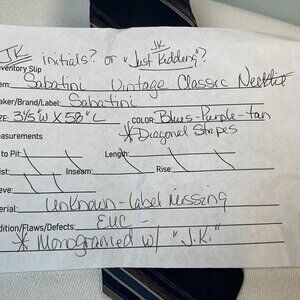 JK initials? or "Just Kidding"?
JK
ventory Slip
em: Sabatini Vintage Classic Necktie
aker/Brand/Label: Sabatini
ZE: 3½" W X 58" L COLOR: Blues-Purple-tan
easurements * Diagonal Stripes
to Pit: Length:
ist: Inseam: Rise:
eve:
terial: unknown-label missing
ndition/Flaws/Defects: EUC -
* Monogramed w/ "J.K."